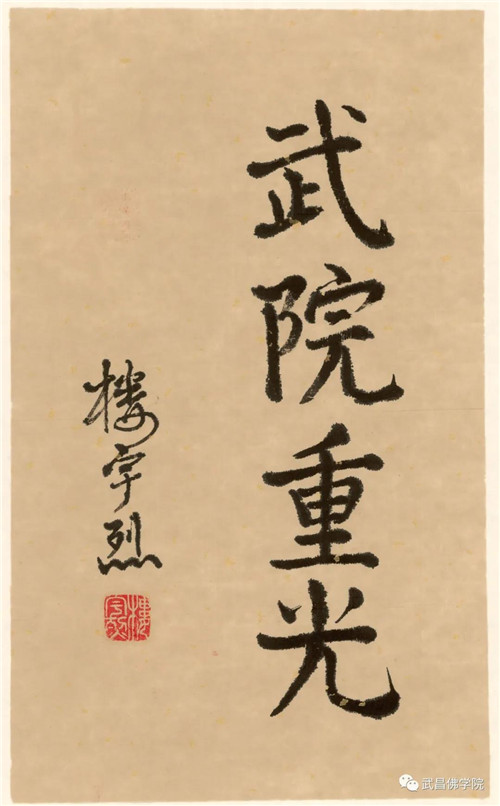 武院重光
楼宇烈
武昌佛学院